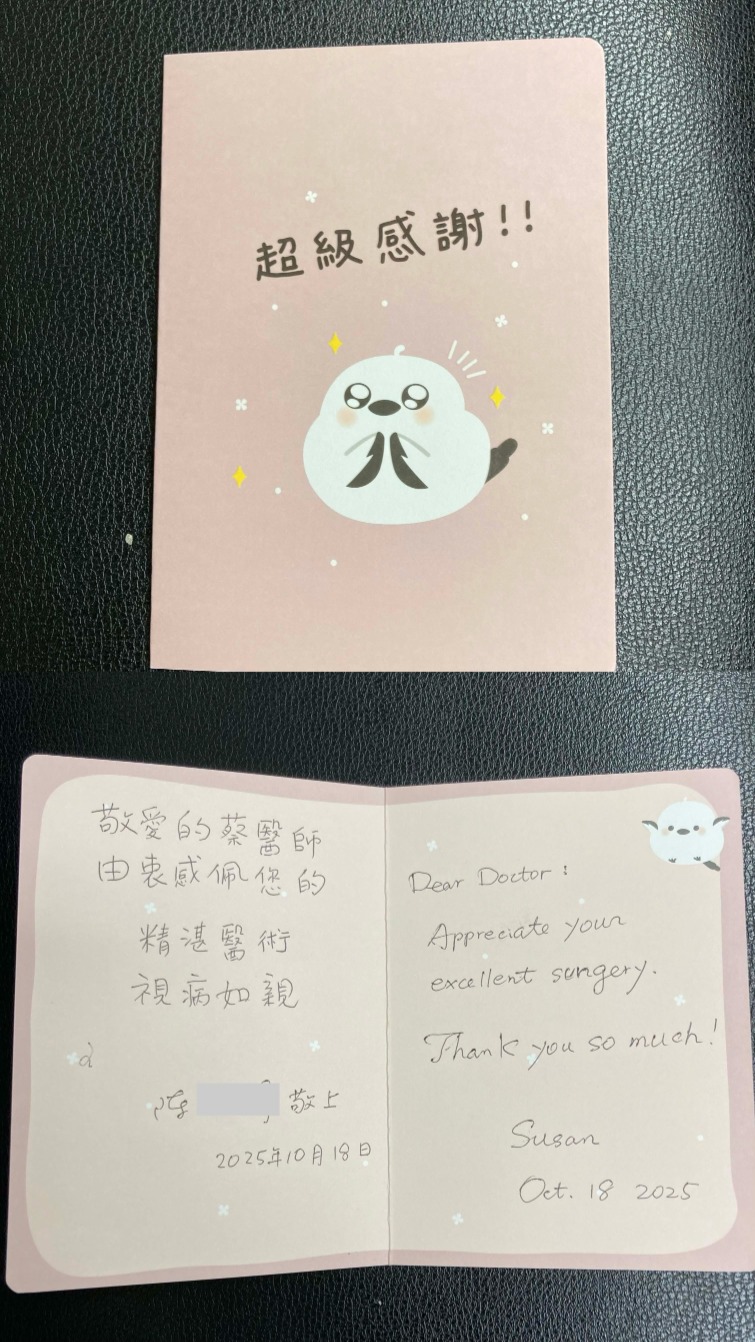 超級感謝!!
敬愛的蔡醫師
由衷感佩您的
精湛醫術
視病如親
敬上
2025年10月18日
Dear Doctor:
Appreciate your
excellent surgery.
Thank you so much!
Susan
Oct. 18 2025